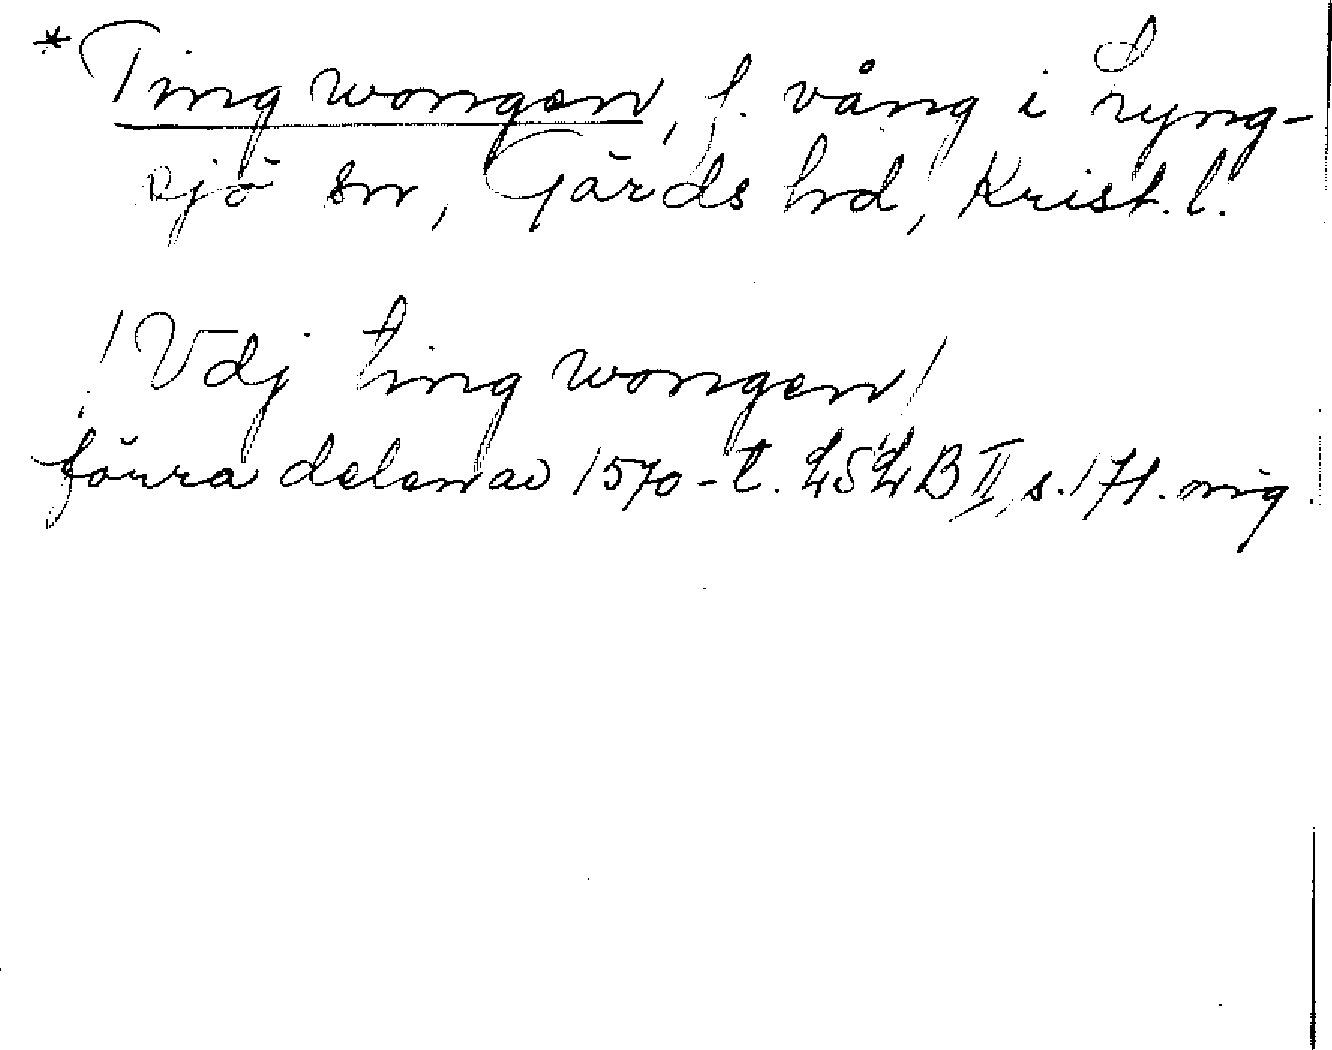 *Tingwongen, f. vång i Lyng-
sjö sn, Gärds hd, Krist. l.
/Vdj tingwongen/
förra delen av 1570-t. LSLB II, s. 171. orig.